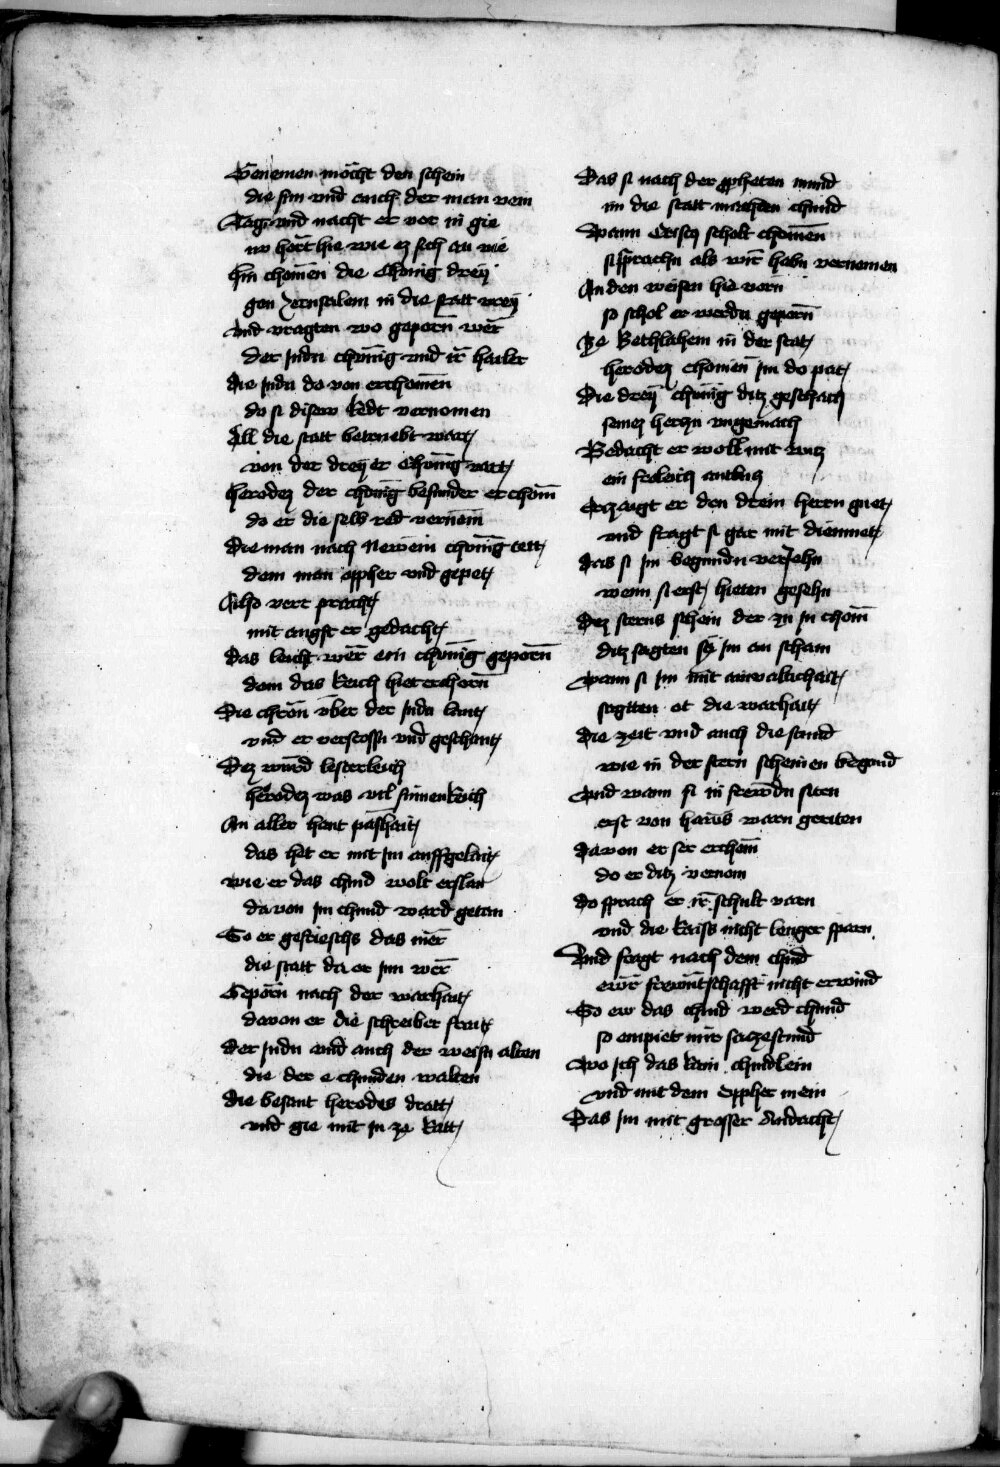 Benemen möcht den schein
die sun vnd auch der man vein
Tag vnd nacht er vor in gie
nv hört hie wie ez sich an vie
Hin chomen die Chönig dreÿ
gen Jerusalem in die statt vreÿ
Vnd vragten wo geporn wer
der Judn chunig vnd ir hailer
Die Judn do von erchomen
do si disew Redt vernomen
All die statt betruebt wart
von der dreÿer Chunig vart
Herodez der chönig besunder erchom
do er die selb red vernem
Die man nach Newem chunig tett
dem man oppher vnd gepet
Also vert pracht
mit angst er gedacht
Das leicht wer ein chunig geporn
dem das Reich hiet erchorn
Die chron vber der Judn lant
vnd er verstossn vnd geschant
Dez wurd lesterleich
herodez was vil sinnenreich
An aller hant pashait
das het er mit Im auffgelait
wie er das chind wolt erslan
da von Im chund ward getan
So er gefrieschs das mer
die statt da er Inn wer
Geporn nach der warhait
davon er die schreiber frait
Der Judn vnd auch der weisn alten
die der e chunden walten
Die besant herodes dratt
vnd gie mit In ze Ratt
Das si nach der propheten mund
im die statt machten chund
Wann Crists scholt chomen
si sprachn als wir habn vernomen
An den weisen hie vorn
so schol er werdn geporn
Ze Bethlahem in der stat
herodez chomen Im do pat
Die dreÿ chunig ditz geschach
seinez herczn vngemach
Bedacht er woll mit witz
ein froleich antlutz
Erczaigt er den drein herrn guet
vnd fragt si gar mit diemuet
Das si Im begundn veriehn
wenn si erst hieten gesehn
Dez sterns schein der zu In chom
ditz sagten sÿ Im an scham
Wann si Im mit ainvaltichait
sagtten ot die warhait
Die zeit vnd auch die stund
wie in der stern scheinen begond
Vnd wann si in frewdn siten
erst von haws warn geriten
Davon er ser erchom
do er ditz vernom
Do sprach er ir schult varn
vnd die Raiss nicht lenger sparn
Vnd fragt nach dem chind
ewr frewntschafft nicht erwind
So ew das chind werd chund
so enpiet mir sa ze stund
Wo Ich das klain chindlein
vnd mit dem Oppher mein
Das Im mit grosser Andacht